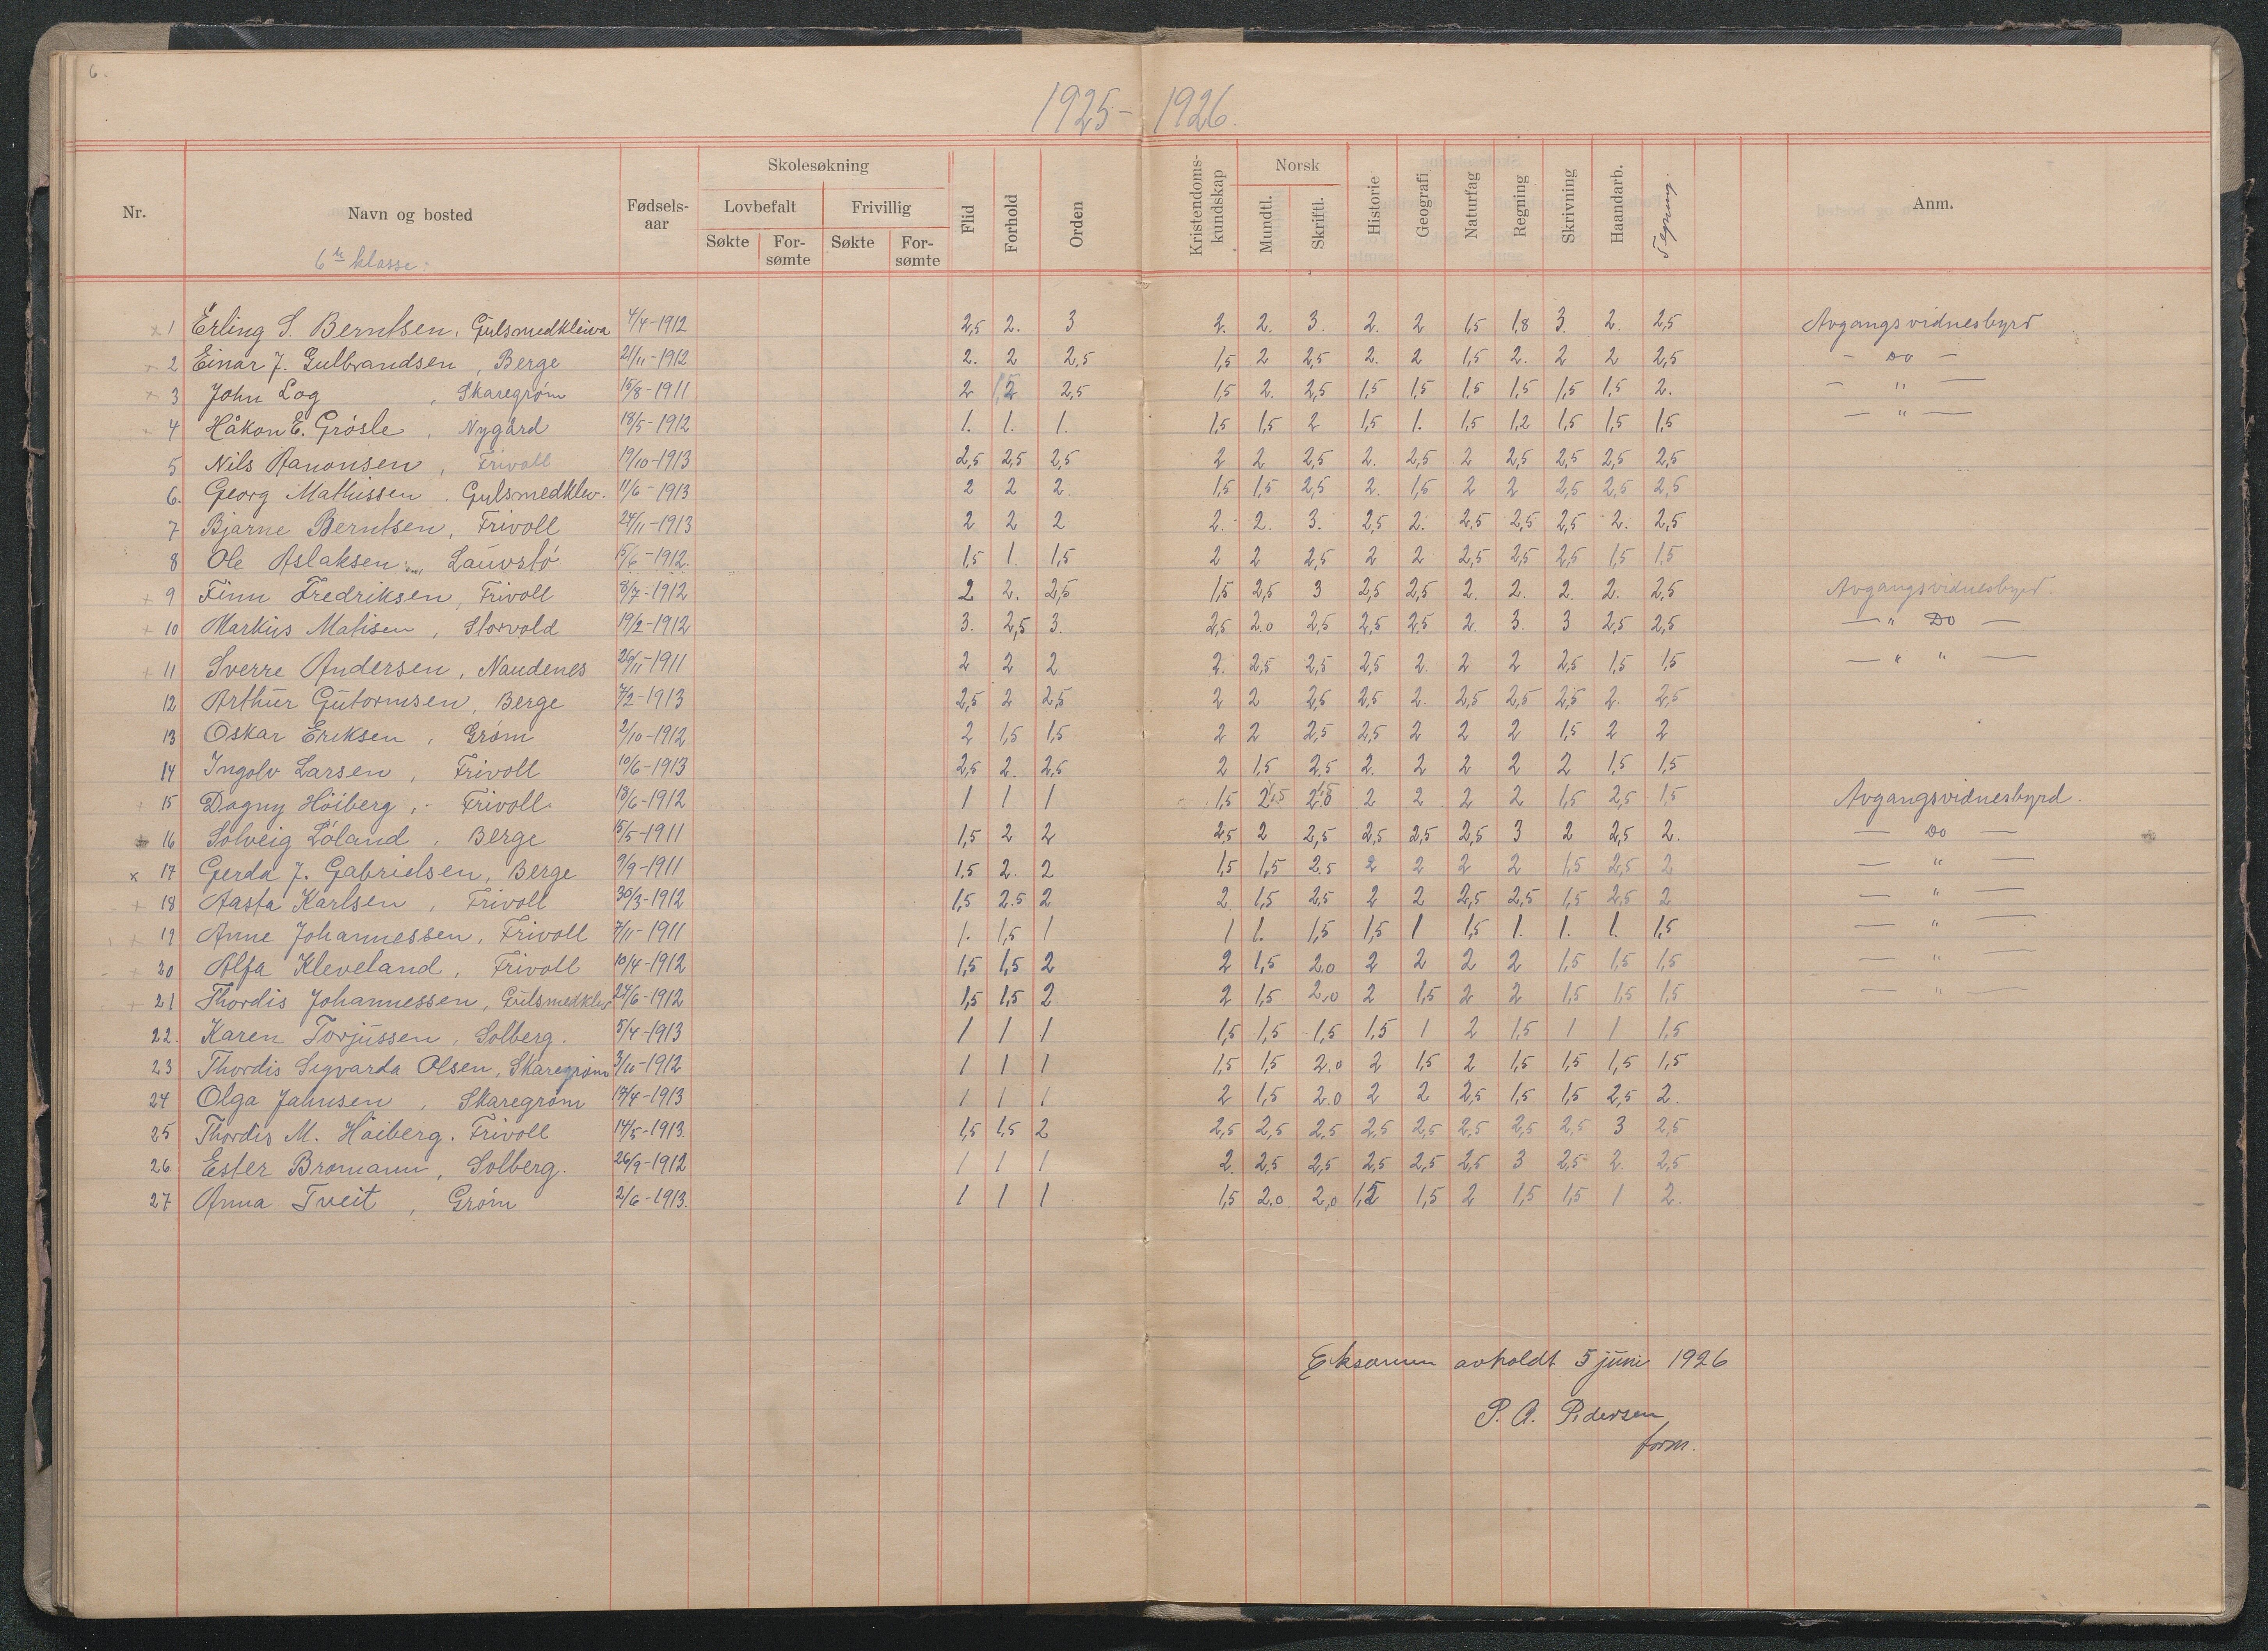 6.
1925- 1926.
Nr. Navn og bosted Fødsels-aar Skolesøkning Lovbefalt Frivillig Søkte For-sømte Søkte For-sømte Flid Forhold Orden Kristendoms-kundskap Norsk Mundtl. Skriftl. Historie Geografi Naturfag Regning Skrivning Haandarb. Tegning. Anm.
6te klasse:
x 1 Erling S. Berntsen, Gulsmedkleiva 4/4-1912 2,5 2. 3 2. 2. 3. 2. 2 1,5 1,8 3. 2. 2,5 Avgangsvidnesbyrd
+ 2 Einar J. Gulbrandsen, Berge 21/11-1912 2. 2 2,5 1,5 2 2,5 2. 2 1,5 2. 2 2 2,5 - Do -
+ 3 John Log, Skaregrøm 15/8-1911 2 2,5 1,5 2. 2,5 1,5 1,5 1,5 1,5 1,5 1,5 2. - " -
+ 4 Håkon E. Grösle, Nygård 18/5-1912 1. 1. 1. 1,5 1,5 2 1,5 1. 1,5 1,2 1,5 1,5 1,5 - " -
5 Nils Aanonsen, Frivoll 19/10-1913 2,5 2,5 2,5 2 2 2,5 2. 2,5 2 2,5 2,5 2,5 2,5
6. Georg Mathissen. Gulsmedklev. 11/6-1913 2 2 2. 1,5 1,5 2,5 2. 1,5 2 2 2,5 2,5 2,5
7 Bjarne Berntsen, Frivoll 24/11-1913 2 2 2 2. 2. 3. 2,5 2. 2,5 2,5 2,5 2. 2,5
8 Ole Aslaksen, Lauvstö 15/6-1912. 1,5 1. 1,5 2 2 2,5 2 2 2,5 2,5 2,5 1,5 1,5
+ 9 Finn Fredriksen, Frivoll 8/7-1912 2 2. 2,5 1,5 2,5 3 2,5 2,5 2. 2. 2. 2. 2,5 Avgangsvidnesbyrd.
+ 10 Markus Matisen, Storvold 19/2-1912 3. 2,5 3. 2,5 2.0 2,5 2,5 2,5 2. 3. 3 2,5 2,5 - " Do -
+ 11 Sverre Andersen, Naudenes 26/11-1911 2 2 2 2. 2,5 2,5 2,5 2. 2 2 2,5 1,5 1,5 - " " -
12 Arthur Gutormsen, Berge 7/2-1913 2,5 2 2,5 2 2 2,5 2,5 2. 2,5 2,5 2,5 2. 2,5
13 Oskar Eriksen, Grøm 2/10-1912 2 1,5 1,5 2 2 2,5 2,5 2 2 2 1,5 2 2
14 Ingolv Larsen, Frivoll 10/6-1913 2,5 2. 2,5 2 1,5 2,5 2. 2 2 2 2 1,5 1,5
+ 15 Dagny Höiberg, - Frivoll 18/6-1912 1 1 1 1,5 2 2 2 2 1,5 2,5 1,5 Avgangsvidnesbyrd.
+ 16 Solveig Löland, Berge 15/5-1911 1,5 2 2 2,5 2 2,5 2,5 2,5 2,5 3 2 2,5 2. - Do -
x 17 Gerda J. Gabrielsen, Berge 9/9-1911 1.5 2. 2 1,5 1,5 2.5 2 2 2 2 1,5 2,5 2 - " -
+ 18 Aasta Karlsen, Frivoll 30/3-1912 1,5 2.5 2 2 1,5 2,5 2 2 2,5 2,5 1,5 2,5 2 - " -
+ 19 Anne Johannessen, Frivoll 7/11-1911 1. 1,5 1 1 1. 1,5 1,5 1 1,5 1. 1. 1. 1,5 - " -
+ 20 Alfa Kleveland, Frivoll 10/4-1912 1,5 1,5 2 2 1,5 2.0 2 2 2 2 1,5 1,5 1,5 - " -
+ 21 Thordis Johannessen, Gulsmedklev 24/6-1912 1,5 1,5 2 2 1,5 2,0 2 1,5 2 2 1,5 1,5 1,5 - " -
22. Karen Torjussen, Solberg. 5/4-1913 1 1 1 1,5 1,5 1,5 1,5 1 2 1,5 1 1 1,5
23 Thordis Sigvarda Olsen, Skaregrøm 3/10-1912 1 1 1 1,5 1,5 2.0 2 1,5 2 1,5 1,5 1,5 1,5
24 Olga Jahnsen, Skaregrøm 17/4-1913 1 1 1 2 1,5 2.0 2 2 2,5 1,5 1,5 2,5 2.
25 Thordis M. Höiberg. Frivoll 14/5-1913. 1,5 1,5 2 2,5 2,5 2,5 2,5 2,5 2,5 2,5 2,5 3 2,5
26 Ester Bromann, Solberg. 26/9-1912 1 1 1 2. 2,5 2,5 2,5 2,5 2,5 3 2,5 2. 2,5
27 Anna Tveit, Grøm 2/6-1913. 1 1 1 1,5 2.0 2,0 1,5 1,5 2 1,5 1,5 1 2.
Eksamen avholdt 5 juni 1926
P. A. Pedersen
form.